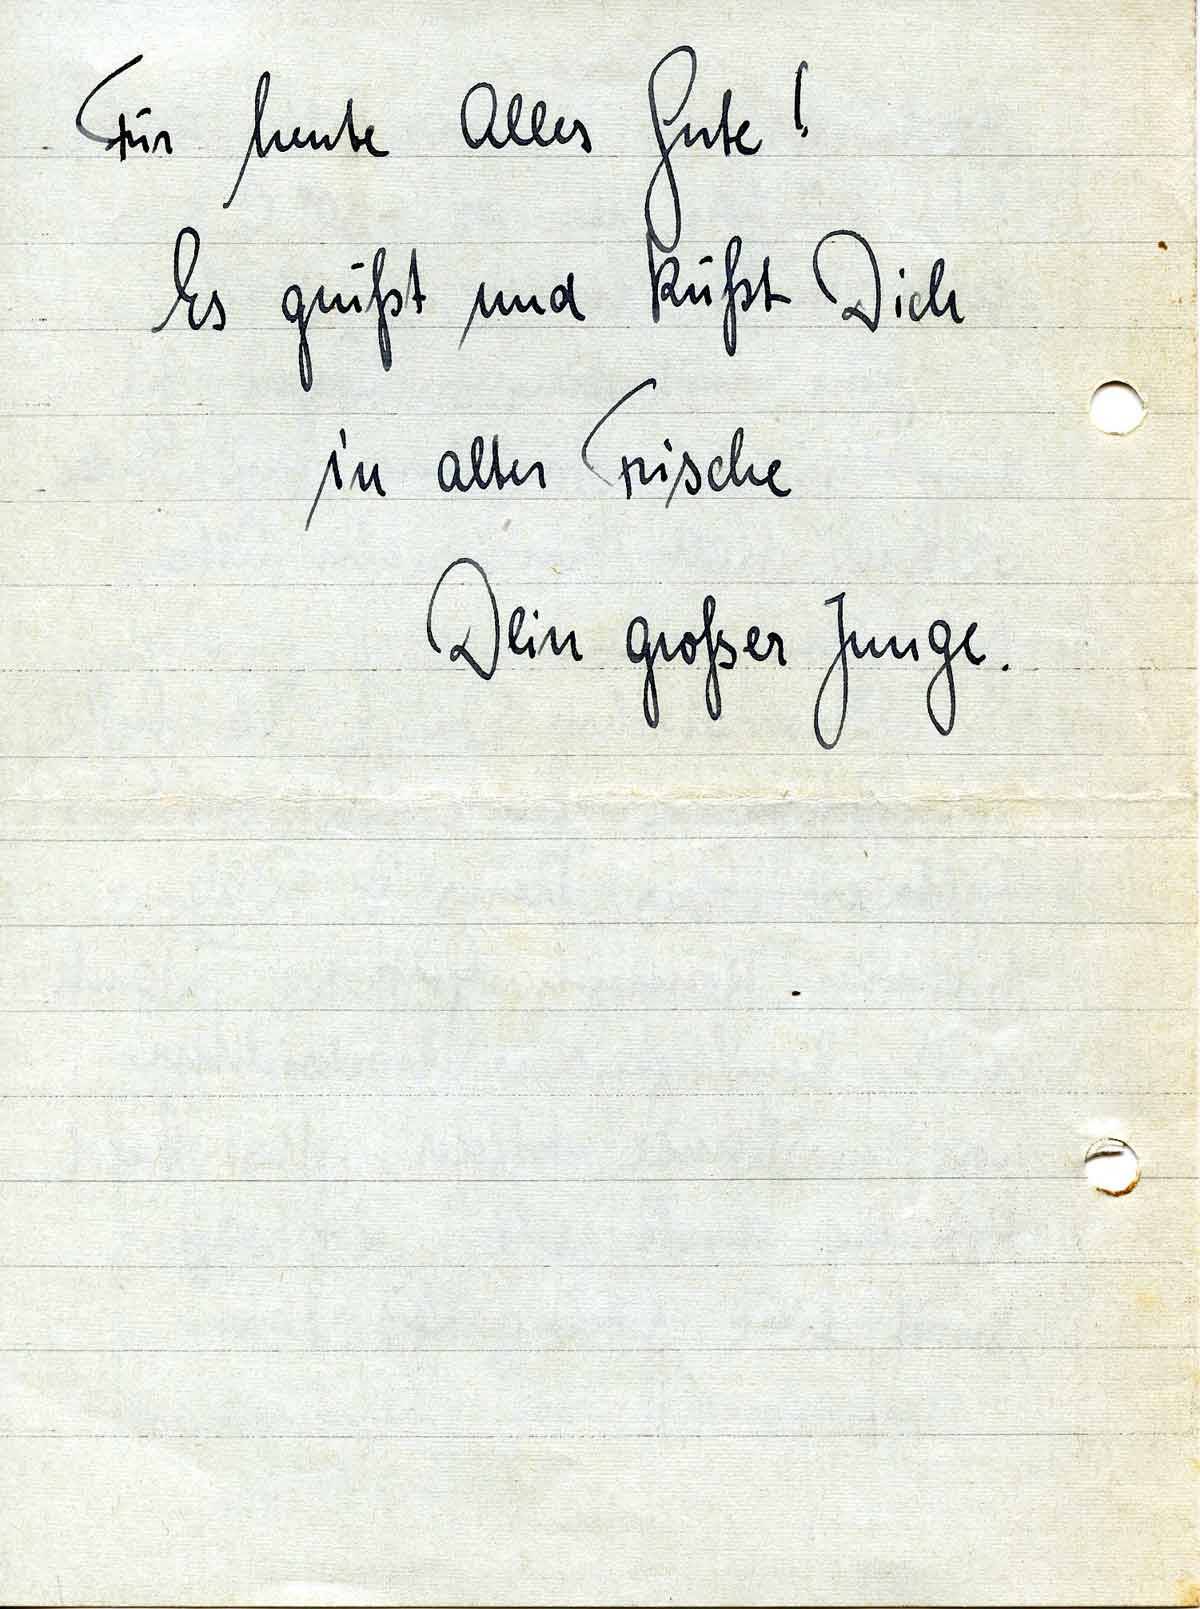 Für heute Alles Gute!
Es grüßt und küßt Dich
in alter Frische
Dein großer Junge.